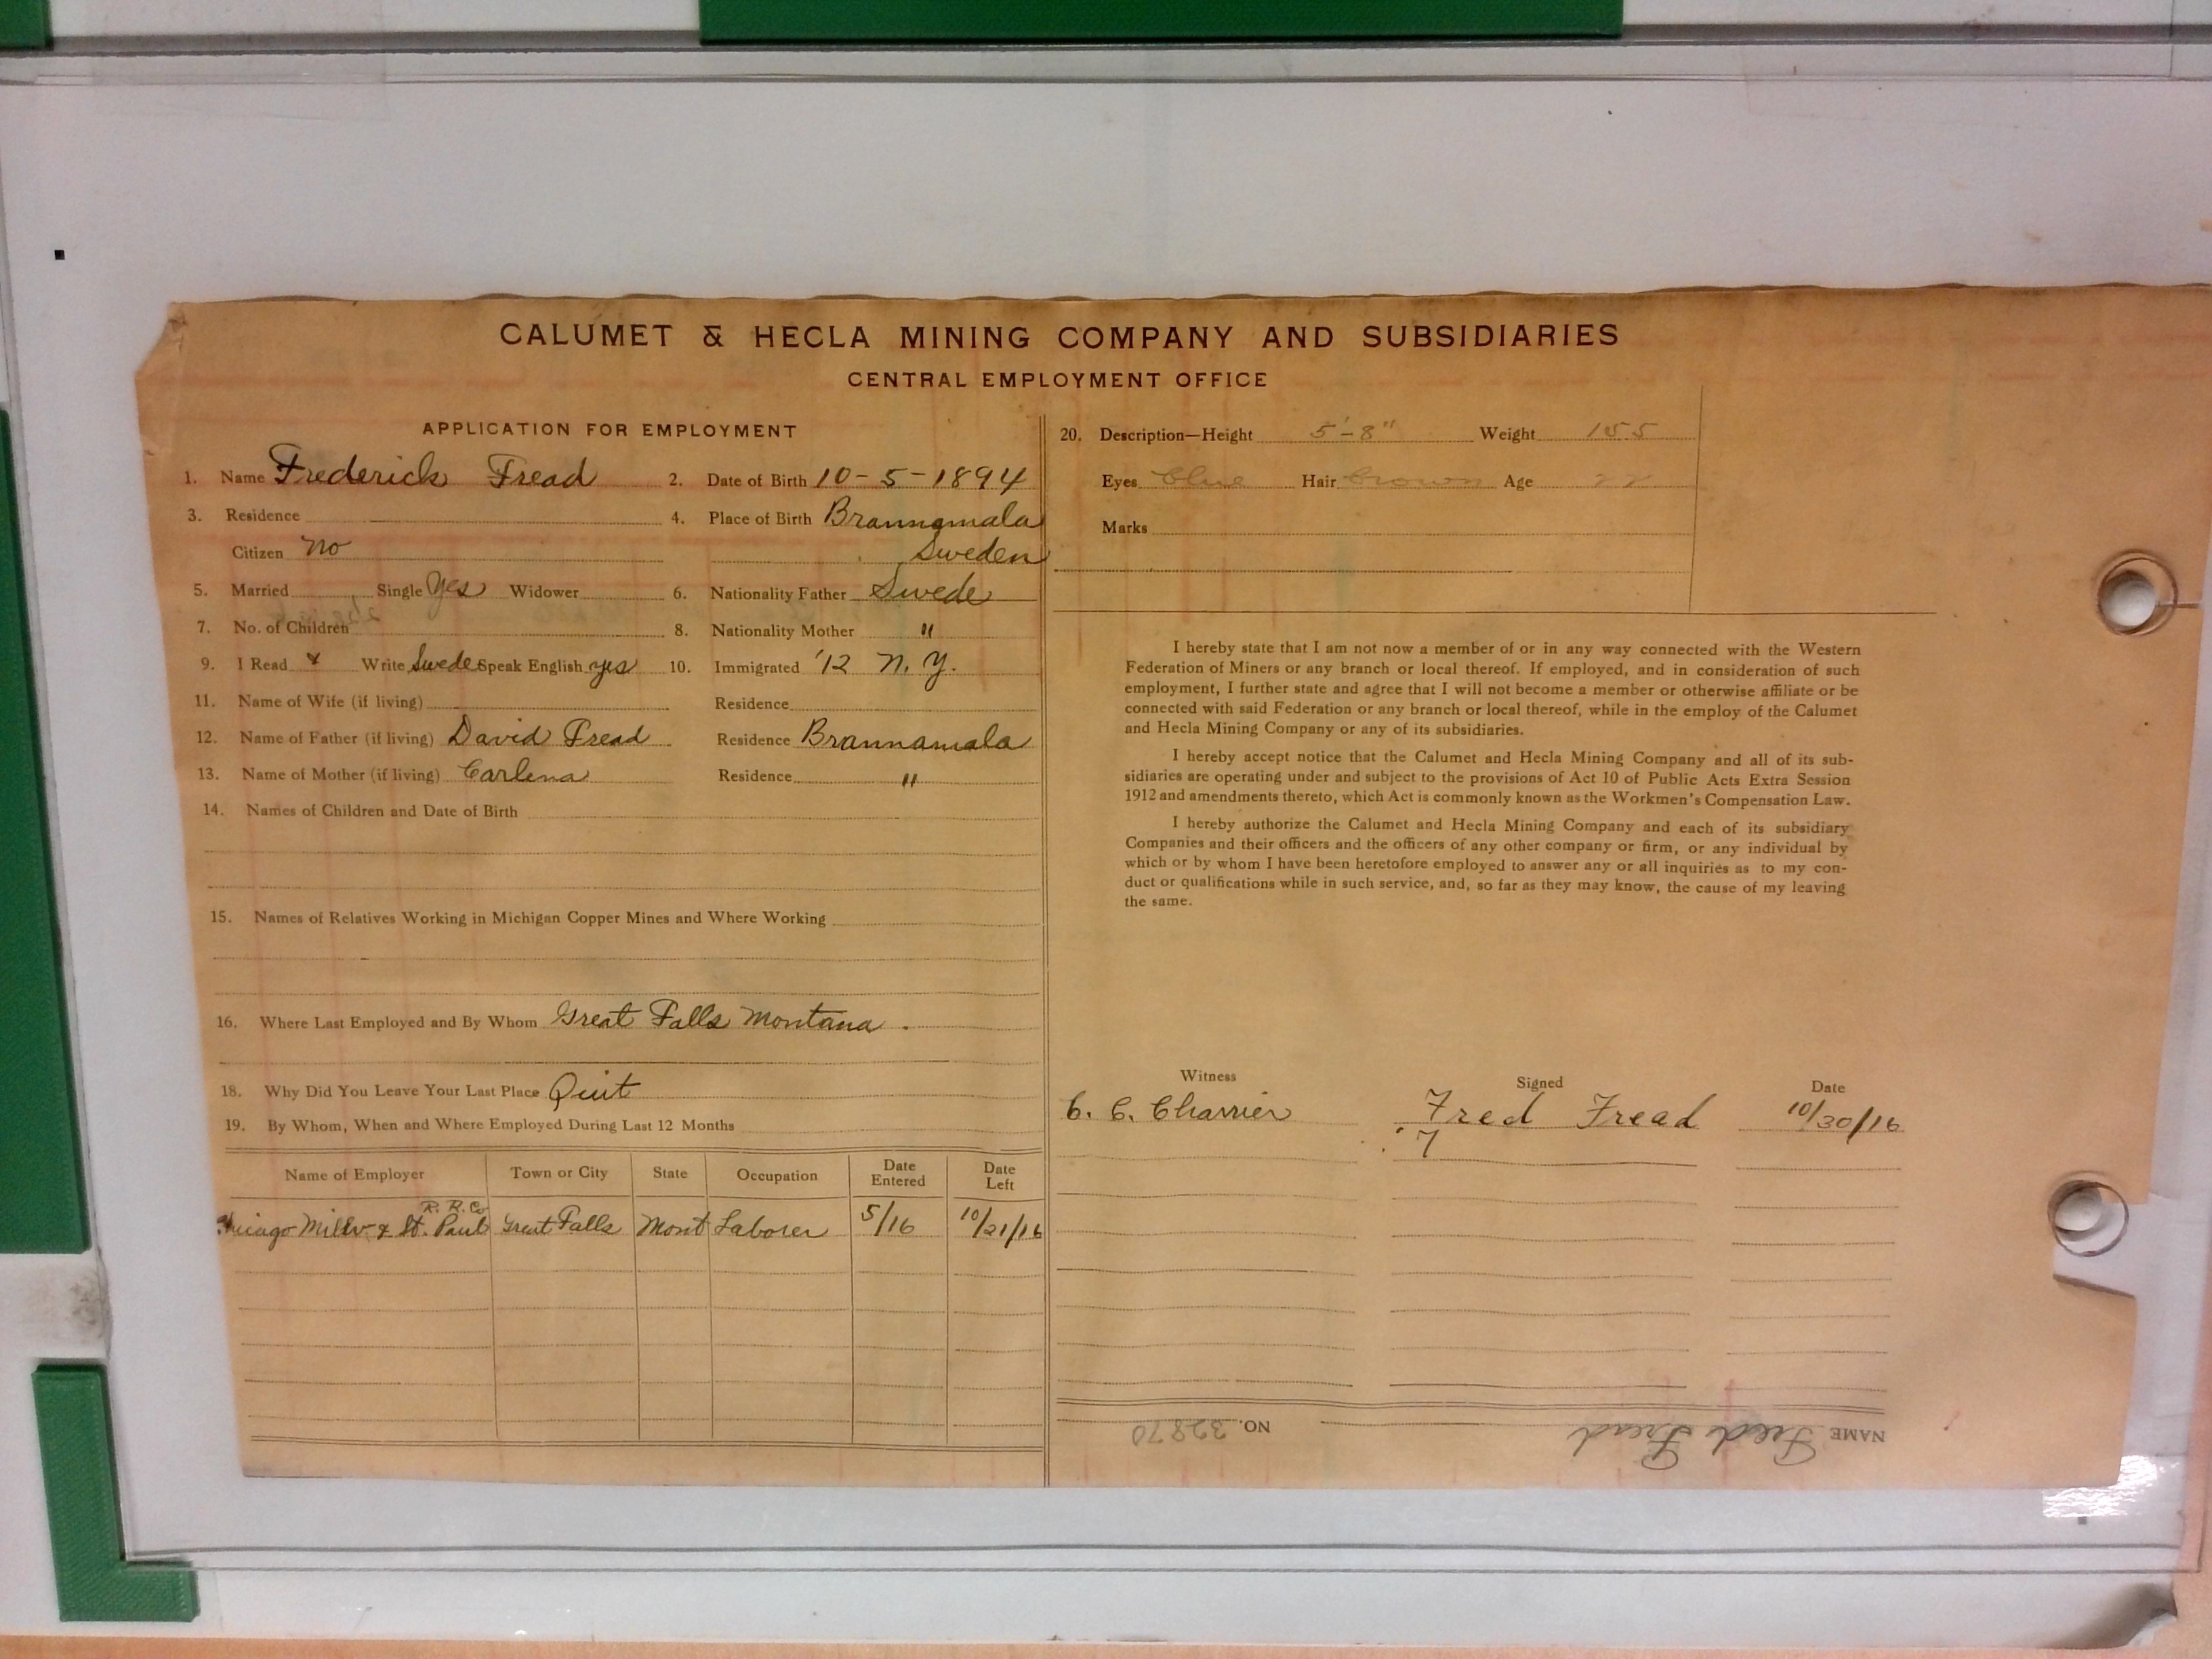 CALUMET & HECLA MINING COMPANY AND SUBSIDIARIES
CENTRAL EMPLOYMENT OFFICE
APPLICATION FOR EMPLOYMENT
1. Name Frederick Fread 2. Date of Birth 10-5-1894
3. Residence 4. Place of Birth Brannamala
Citizen no Sweden
5. Married Single Yes Widower 6. Nationality Father Swede
7. No. of Children 8. Nationality Mother "
9. I Read & Write Swede Speak English yes 10. Immigrated '12 N. Y.
11. Name of Wife (if living) Residence
12. Name of Father (if living) David Fread Residence Brannamala
13. Name of Mother (if living) Carlena Residence "
14. Names of Children and Date of Birth
15. Names of Relatives Working in Michigan Copper Mines and Where Working
16. Where Last Employed and By Whom Great Falls Montana.
18. Why Did You Leave Your Last Place Quit
19. By Whom, When and Where Employed During Last 12 Months
Name of Employer Town or City State Occupation Date Entered Date Left
R. R. Co
Chicago Milw. & St. Paul Great Falls Mont Laborer 5/16 10/21/16
20. Description—Height 5'-8" Weight 155
Eyes blue Hair brown Age 22
Marks
I hereby state that I am not now a member of or in any way connected with the Western
Federation of Miners or any branch or local thereof. If employed, and in consideration of such
employment, I further state and agree that I will not become a member or otherwise affiliate or be
connected with said Federation or any branch or local thereof, while in the employ of the Calumet
and Hecla Mining Company or any of its subsidiaries.
I hereby accept notice that the Calumet and Hecla Mining Company and all of its sub-
sidiaries are operating under and subject to the provisions of Act 10 of Public Acts Extra Session
1912 and amendments thereto, which Act is commonly known as the Workmen's Compensation Law.
I hereby authorize the Calumet and Hecla Mining Company and each of its subsidiary
Companies and their officers and the officers of any other company or firm, or any individual by
which or by whom I have been heretofore employed to answer any or all inquiries as to my con-
duct or qualifications while in such service, and, so far as they may know, the cause of my leaving
the same.
Witness Signed Date
C. C. Charrier Fred Fread 10/30/16
7
NAME Fred Fread NO. 32870